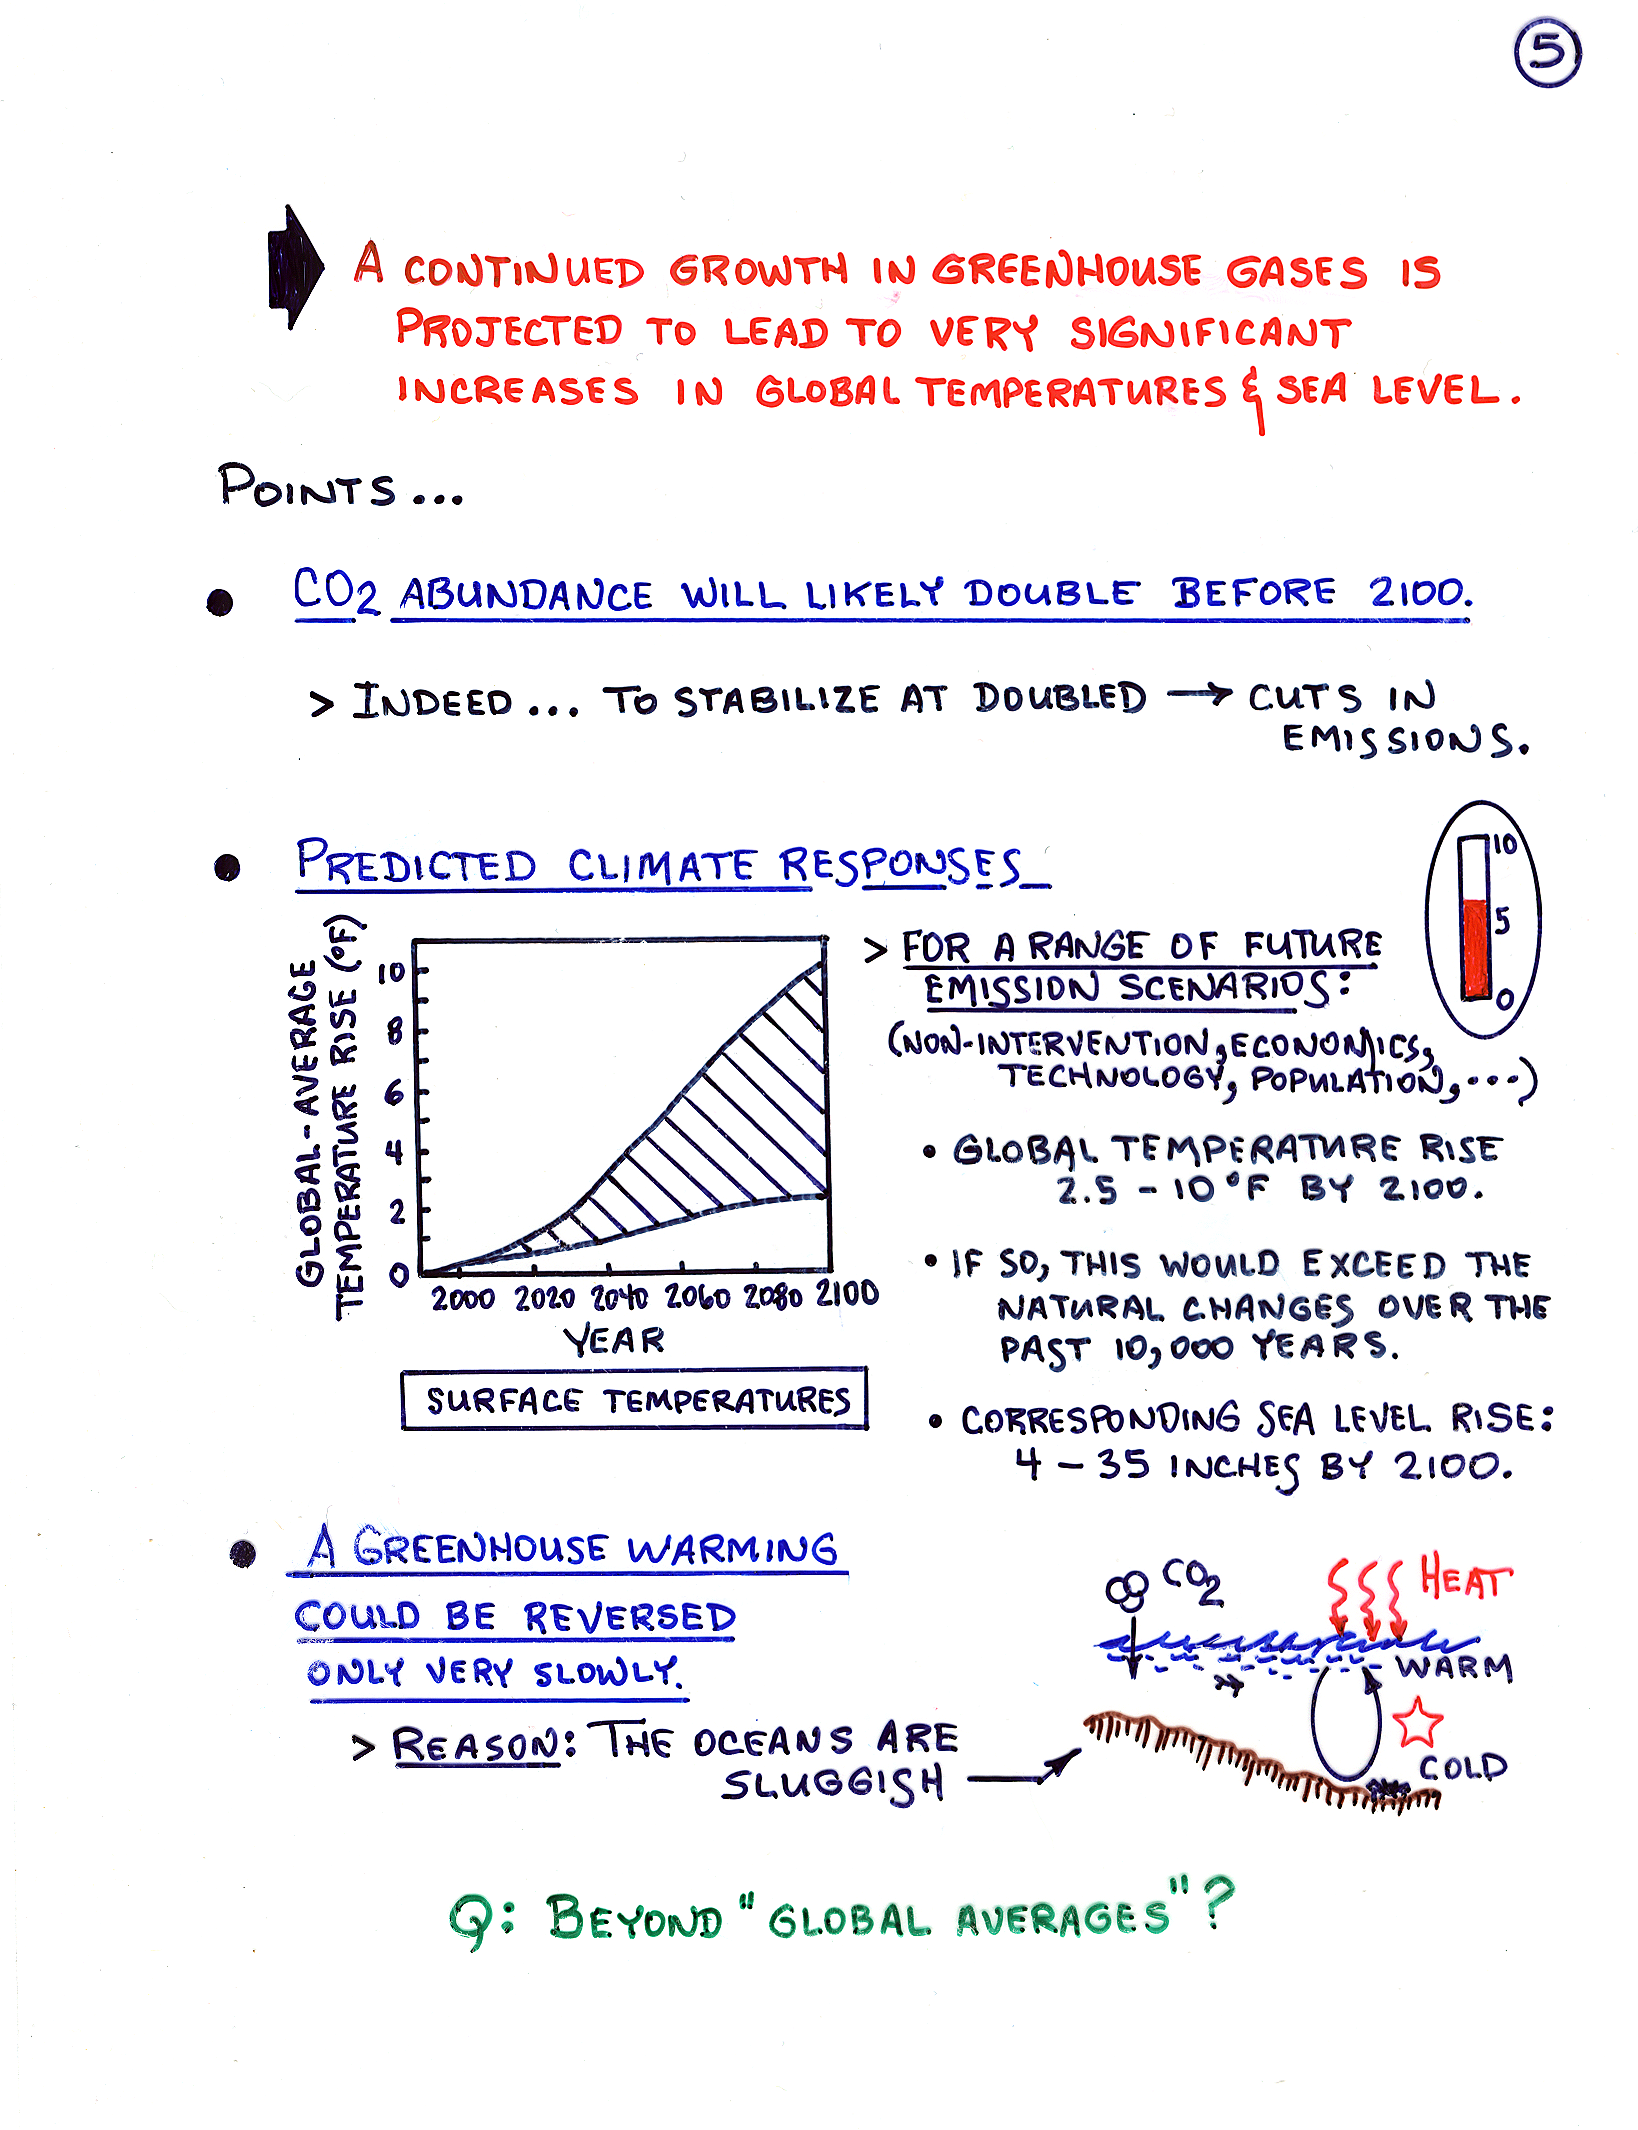 5
A CONTINUED GROWTH IN GREENHOUSE GASES IS
PROJECTED TO LEAD TO VERY SIGNIFICANT
INCREASES IN GLOBAL TEMPERATURES & SEA LEVEL.
POINTS...
● CO2 ABUNDANCE WILL LIKELY DOUBLE BEFORE 2100.
> INDEED... TO STABILIZE AT DOUBLED → CUTS IN
EMISSIONS.
● PREDICTED CLIMATE RESPONSES
GLOBAL-AVERAGE
TEMPERATURE RISE (°F)
10
8
6
4
2
0
2000 2020 2040 2060 2080 2100
YEAR
SURFACE TEMPERATURES
10
5
0
> FOR A RANGE OF FUTURE
EMISSION SCENARIOS:
(NON-INTERVENTION, ECONOMICS,
TECHNOLOGY, POPULATION, ...)
• GLOBAL TEMPERATURE RISE
2.5 - 10°F BY 2100.
• IF SO, THIS WOULD EXCEED THE
NATURAL CHANGES OVER THE
PAST 10,000 YEARS.
• CORRESPONDING SEA LEVEL RISE:
4 - 35 INCHES BY 2100.
● A GREENHOUSE WARMING
COULD BE REVERSED
ONLY VERY SLOWLY.
> REASON: THE OCEANS ARE
SLUGGISH
CO2
HEAT
WARM
COLD
Q: BEYOND "GLOBAL AVERAGES"?